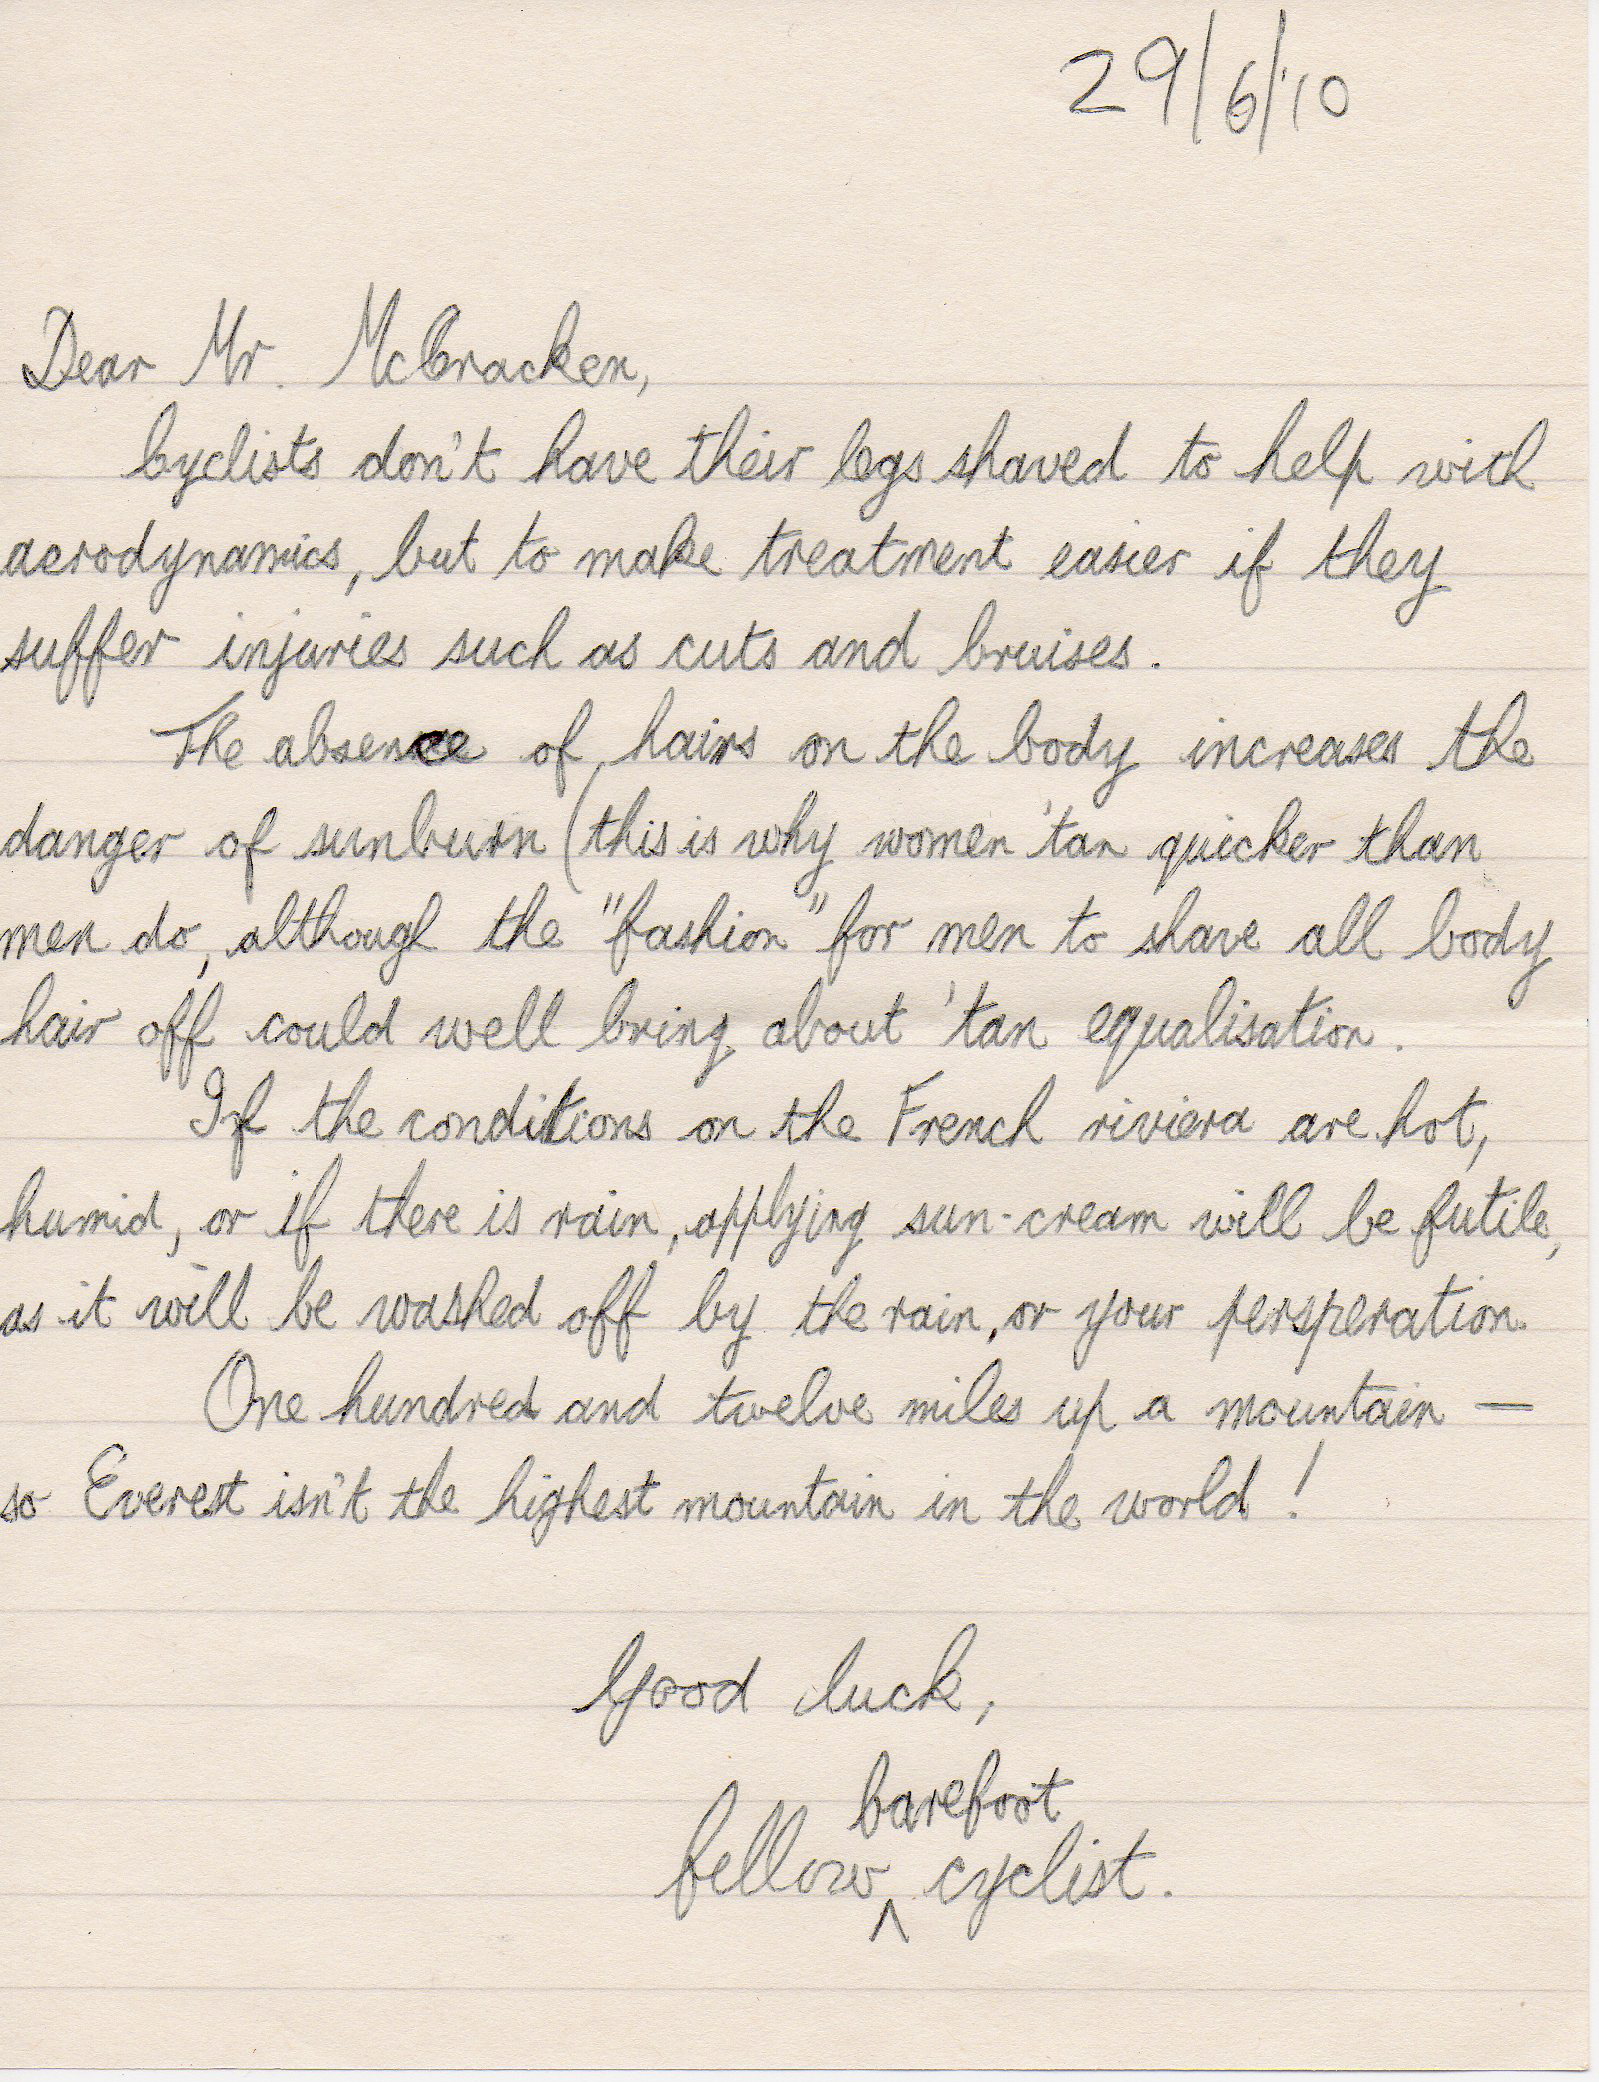 29/6/'10
Dear Mr. McCracken,
Cyclists don't have their legs shaved to help with
aerodynamics, but to make treatment easier if they
suffer injuries such as cuts and bruises.
The absence of hairs on the body increases the
danger of sunburn (this is why women 'tan quicker than
men do, although the "fashion" for men to shave all body
hair off could well bring about 'tan equalisation.
If the conditions on the French riviera are hot,
humid, or if there is rain, applying sun-cream will be futile,
as it will be washed off by the rain, or your persperation.
One hundred and twelve miles up a mountain —
so Everest isn't the highest mountain in the world!
Good luck,
barefoot
fellow ^ cyclist.